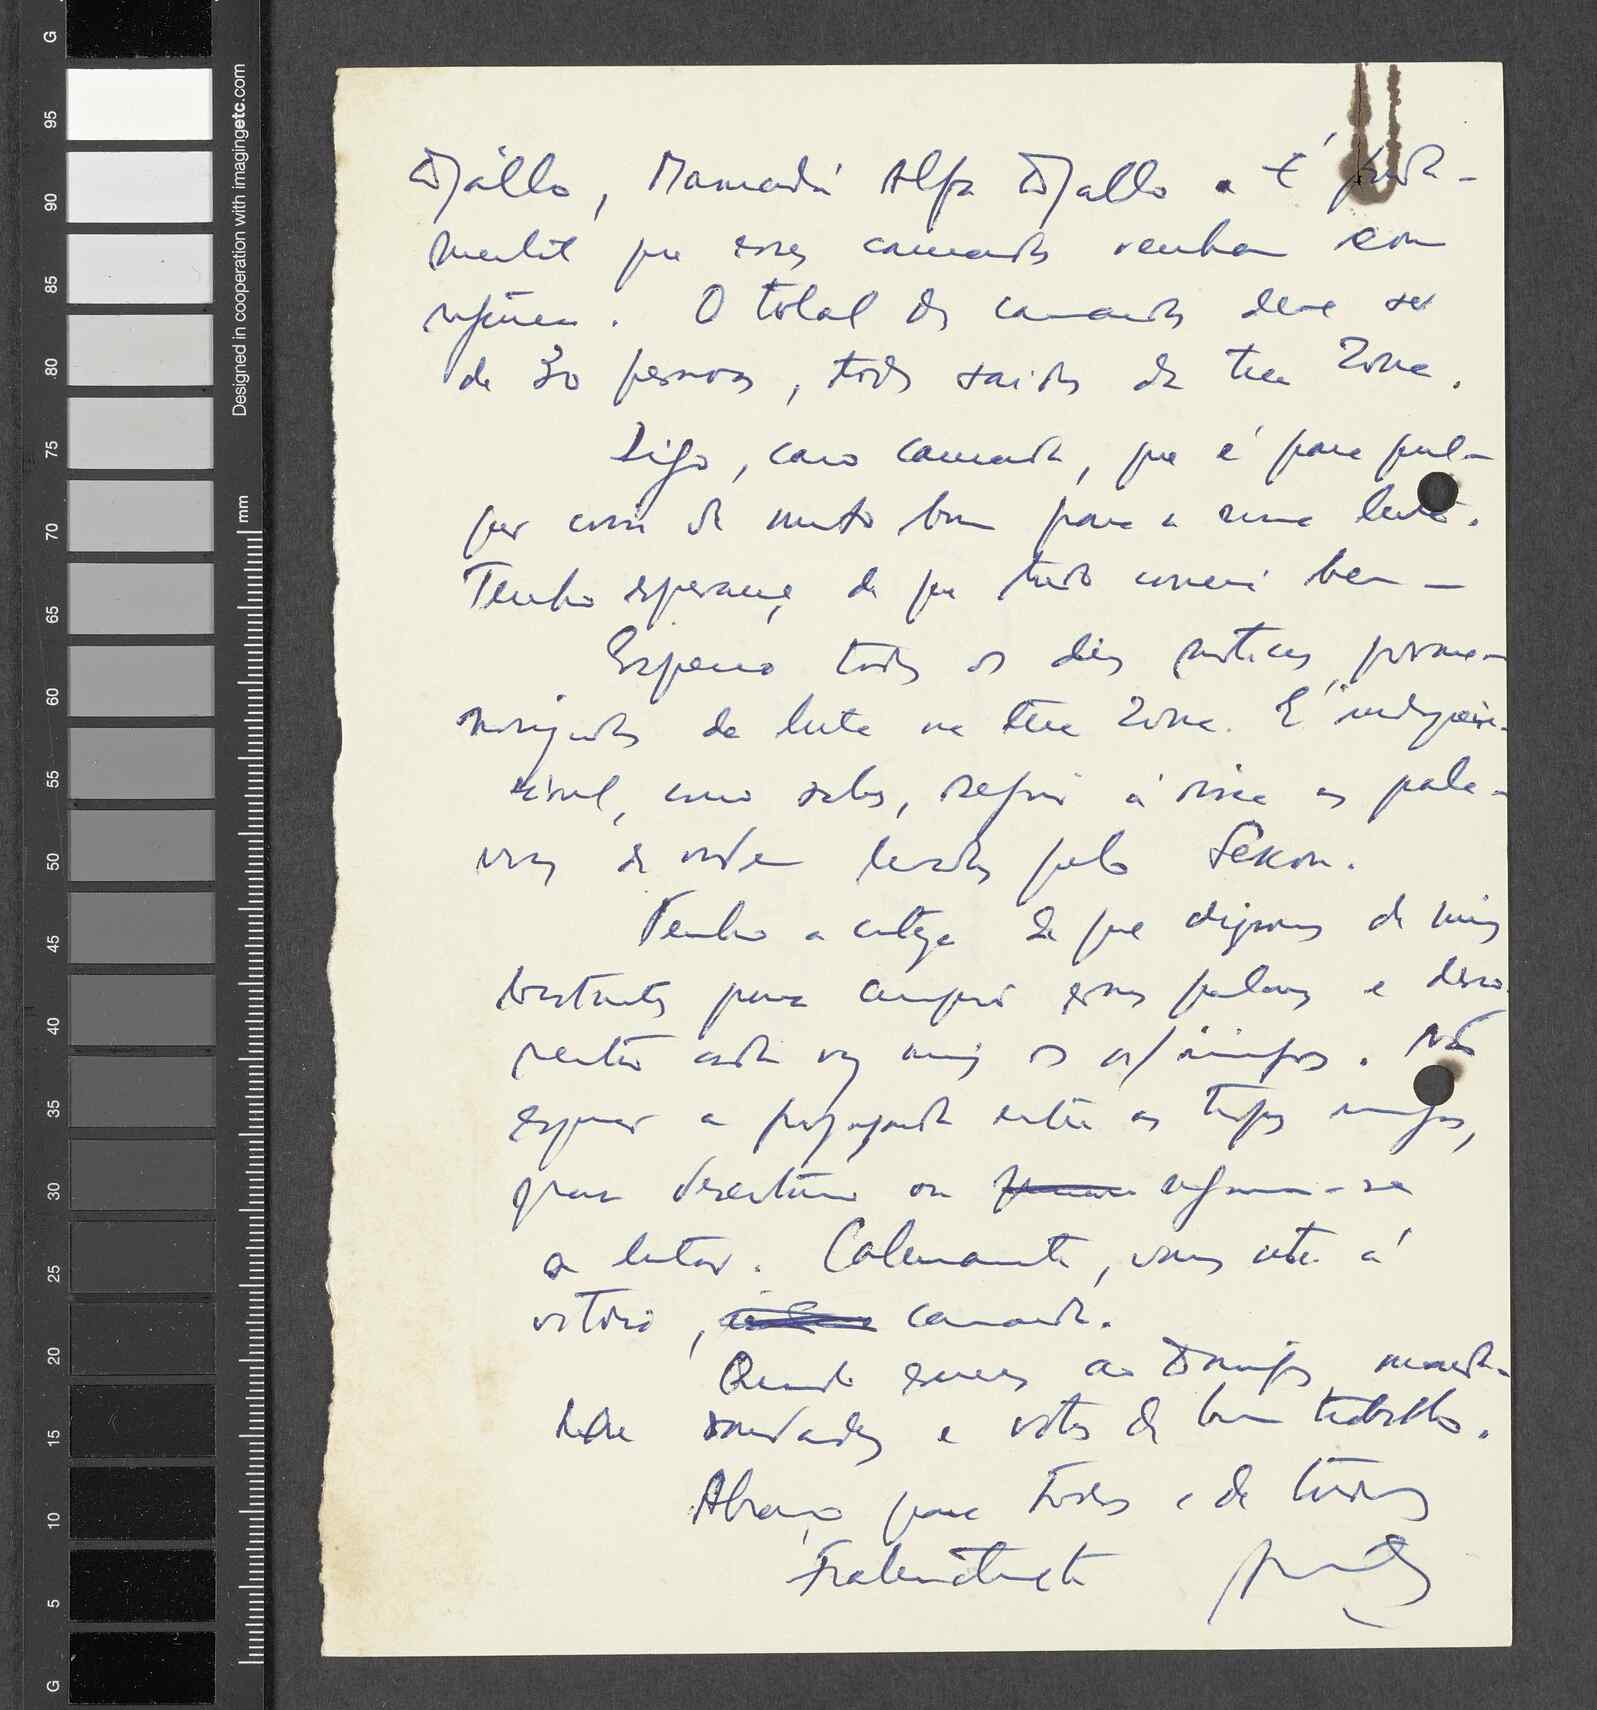 Djálló, Mamadú Alfa Djalló. É funda-
mental que esses camaradas venham com
urgência. O total dos camaradas deve ser
de 30 pessoas, todos saídos da tua Zona.
Digo, caro camarada, que é para qual-
quer coisa de muito bom para a nossa luta.
Tenho esperança de que tudo correrá bem —
Espero todos os dias notícias, porme-
norizadas da luta na tua Zona. É indispen-
sável, como sabes, seguir à risca as pala-
vras de ordem levadas pelo Sékou.
Tenho a certeza de que dispomos de meios
bastantes para cumprir essas palavras e
cada vez mais os n/inimigos. Não
esquecer a propaganda entre as tropas inimigas,
para desertarem ou recusarem-se
a lutar. Calmamente, vamos até à
vitória, camarada.
Quando escreveres ao Domingos, manda-
lhe saudades e votos de bom trabalho.
Abraço para todos e de todos
Fraternalmente
Designed in cooperation with imagingetc.com
mm
G
95
90
85
80
75
70
65
60
55
50
45
40
35
30
25
20
15
10
5
G